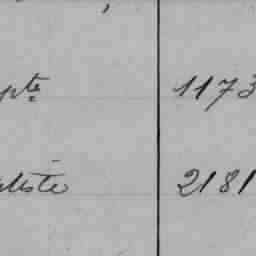 pte 1173
liste 2181